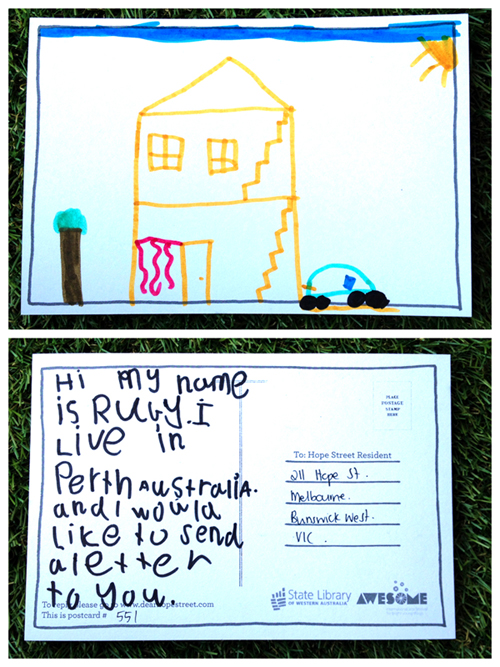 Hi my name
is RUby. I
Live in
Perth AUStraliA.
and I would
Like to send
a letter
to you.
To reply please go to www.dearhopestreet.com
This is postcard # 551
PLACE
POSTAGE
STAMP
HERE
To: Hope Street Resident
211 Hope St.
Melbourne.
Brunswick West.
VIC.
State Library
OF WESTERN AUSTRALIA
AWESOME